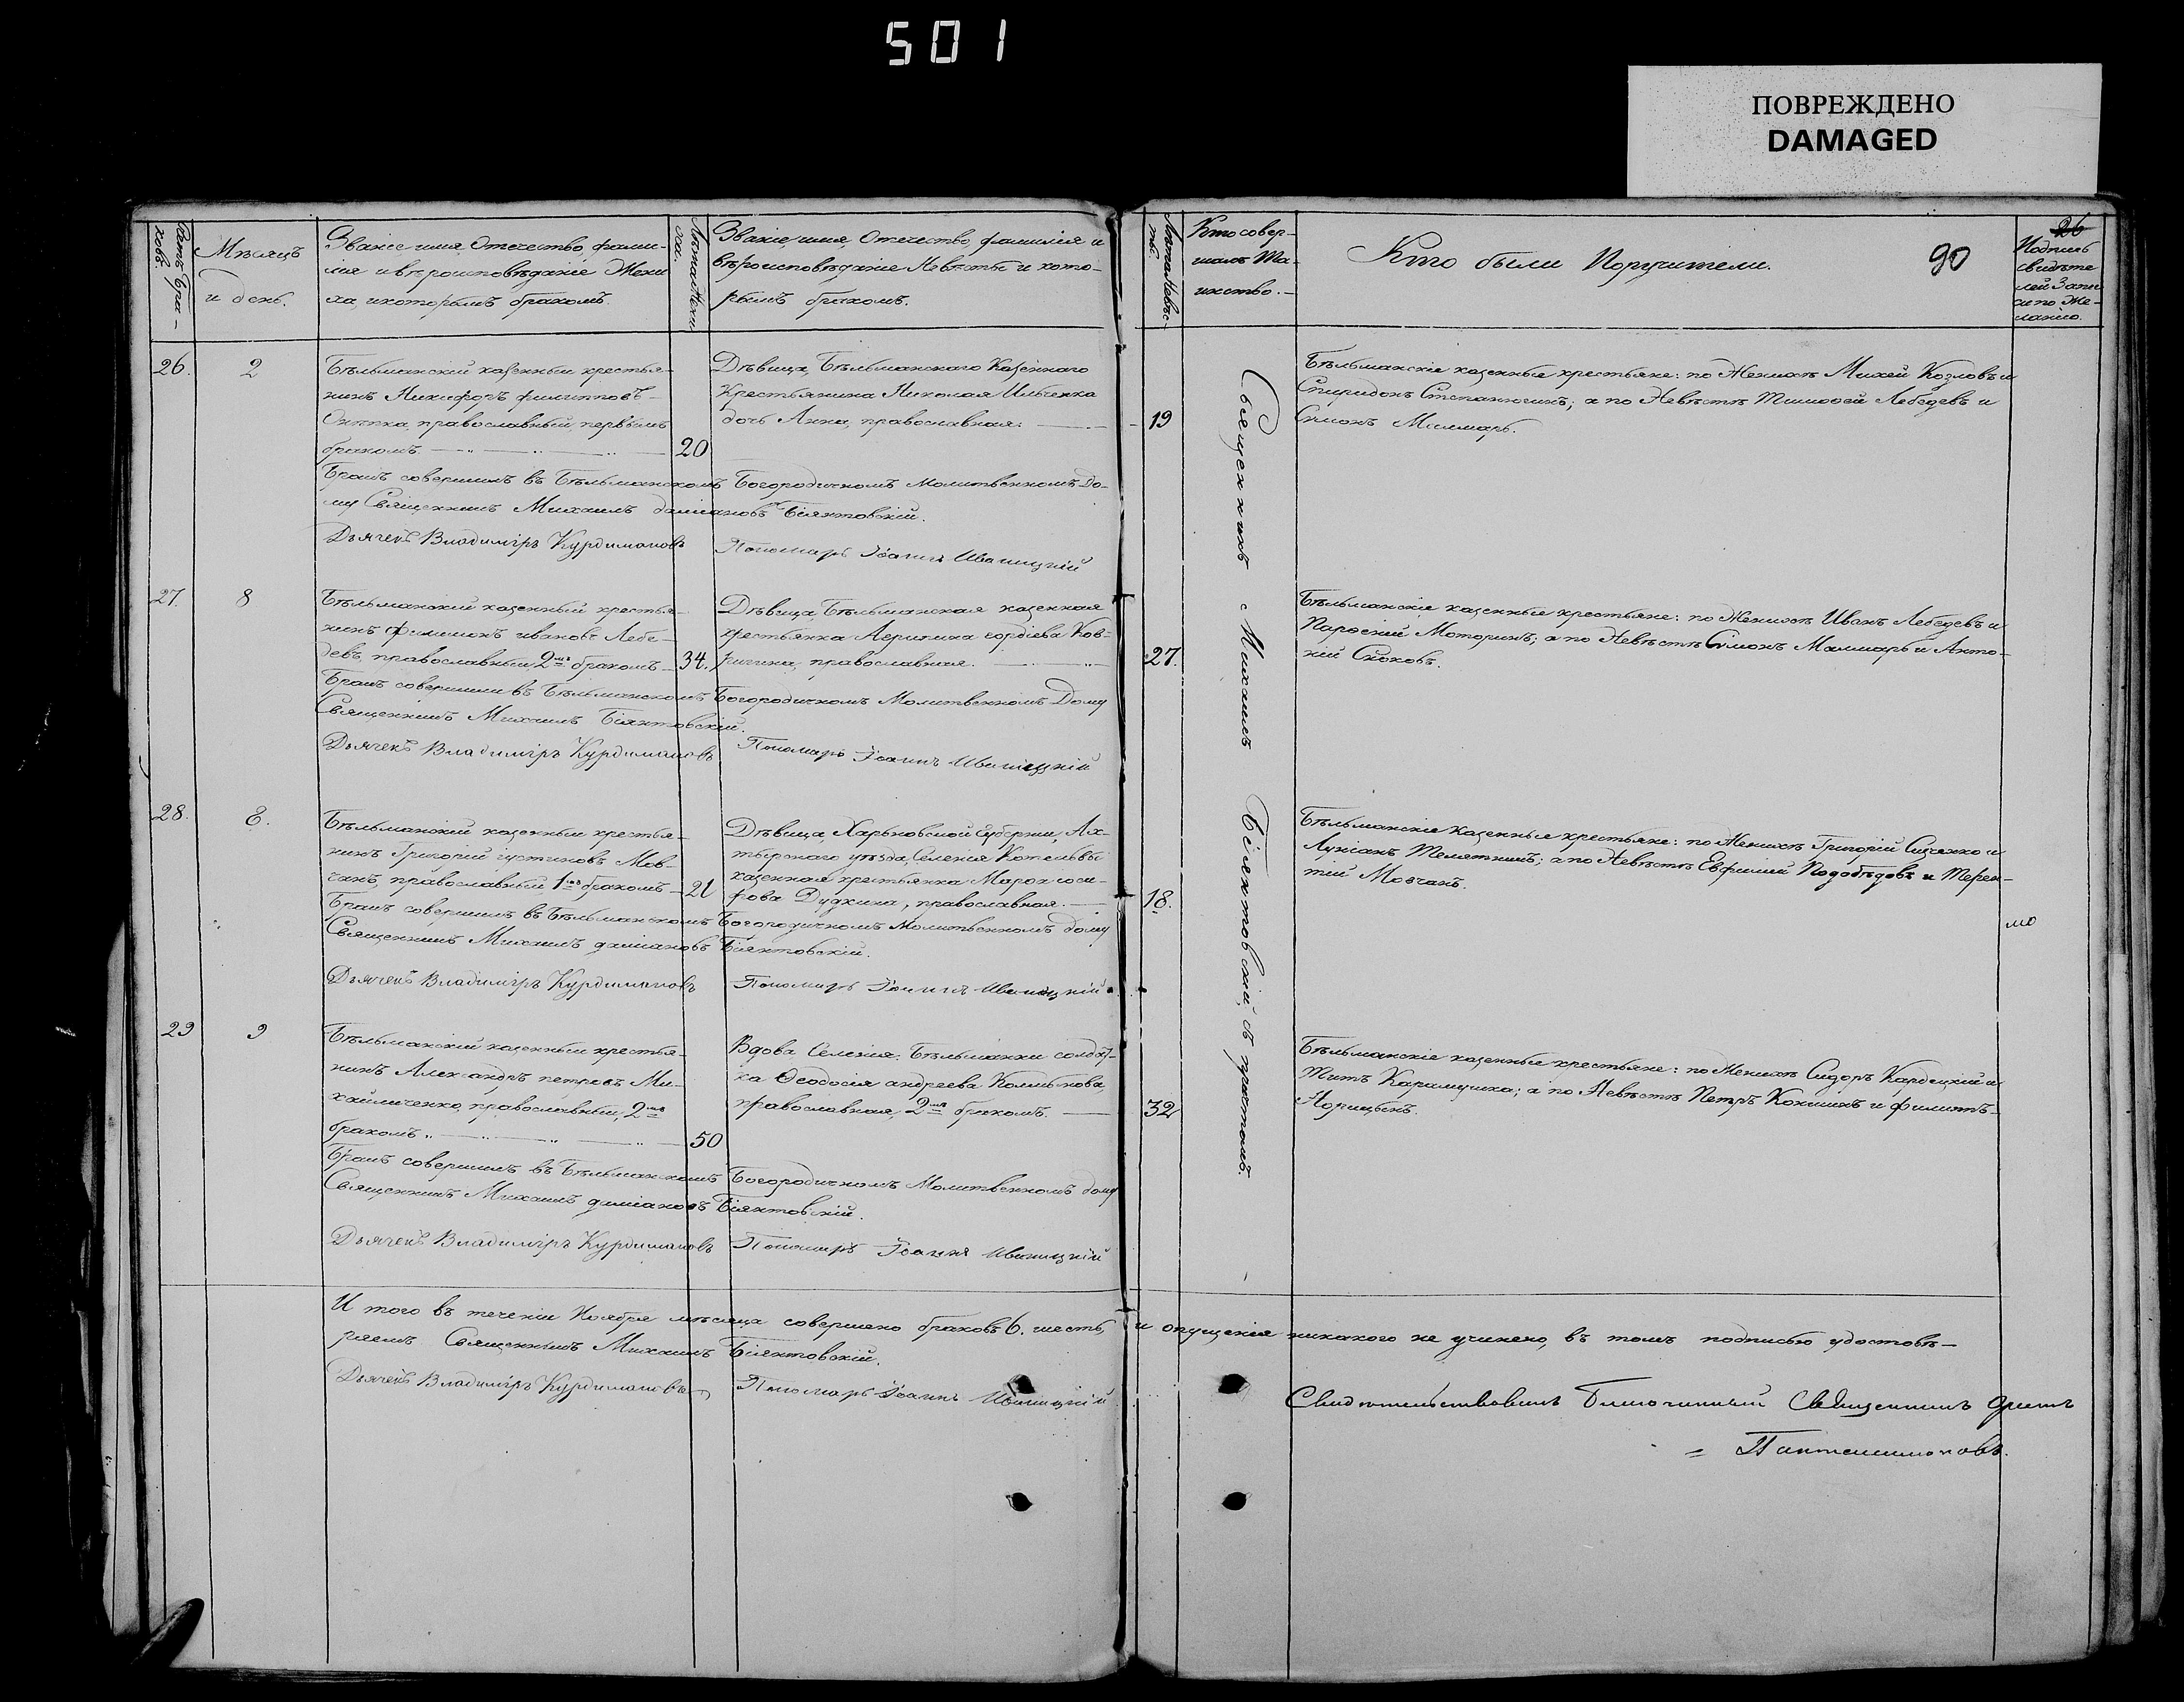 501
ПОВРЕЖДЕНО
DAMAGED
Счетъ бра-
ковъ.
Мѣсяцъ
и день.
Званіе имя, Отечество, фами-
лія и вѣроисповѣданіе Жени
ха, и которымъ бракомъ.
Лѣта Жени
ха.
Званіе имя, Отечество, фамилія и
вѣроисповѣданіе Невѣсты и кото-
рымъ бракомъ.
Лѣта Невѣс-
ты.
Кто совер-
шалъ Та-
инство.
Кто были Поручители.
90
26
Подпись
свидѣте
лей Запи
си по Же-
ланію.
26.
2
Бѣльманскій казенный крестья-
нинъ Никифоръ филипповъ
православный первымъ
бракомъ
20
Дѣвица, Бѣльманскаго Казеннаго
Крестьянина Николая Ильченка
дочь Анна, православная.
19
Бѣльманскіе казенные крестьяне: по Женихѣ Михей Козловъ и
Спиридонъ а по Невѣстѣ Тимофей Лебедевъ и
Симонъ
Бракъ совершилъ въ Бѣльманскомъ Богородичномъ Молитвенномъ До-
му Священникъ Михаилъ даміановъ Біянтовскій.
Дьячекъ Владиміръ Курдимановъ
Пономарь Іоаннъ Иваницкій
Священникъ Михаилъ Біянтовскій, съ причтомъ.
27.
8
Бѣльманскій казенный крестья-
нинъ филимонъ ивановъ Лебе-
девъ, православный, 2мъ бракомъ
34.
Дѣвица, Бѣльманская казенная
крестьянка гордіева Ков-
православная.
27.
Бѣльманскіе казенные крестьяне: по Женихѣ Иванъ Лебедевъ и
Моторинъ; а по Невѣстѣ Симонъ и Анто-
ній Скоковъ.
Бракъ совершилъ въ Бѣльманскомъ Богородичномъ Молитвенномъ Дому
Священникъ Михаилъ Біянтовскій.
Дьячекъ Владиміръ Курдимановъ
Пономарь Іоаннъ Иваницкій
28.
8.
Бѣльманскій казенный крестья-
нинъ Григорій густиновъ Мов-
чанъ, православный 1мъ бракомъ
21
Дѣвица, Харьковской Губерніи, Ах-
тырскаго уѣзда, Селенія Котельвы
казенная крестьянка
Дудкина, православная.
18.
Бѣльманскіе казенные крестьяне: по Женихѣ Григорій и
Лукіанъ Телятникъ; а по Невѣстѣ Евфимій Подобѣдовъ и Терен-
тій Мовчанъ.
Бракъ совершилъ въ Бѣльманскомъ Богородичномъ Молитвенномъ дому
Священникъ Михаилъ даміановъ Біянтовскій.
Дьячекъ Владиміръ Курдимановъ
Пономарь Іоаннъ Иваницкій
29
9
Бѣльманскій казенный крестья-
нинъ Александръ петровъ Ми-
хайличенко, православный, 2мъ
бракомъ
50
Вдова Селенія Бѣльманки солдат-
ка Ѳеодосія андреева
православная, 2мъ бракомъ.
32
Бѣльманскіе казенные крестьяне: по Женихѣ Сидоръ и
Титъ Карамушка; а по Невѣстѣ Петръ Коншинъ и филиппъ
Бракъ совершилъ въ Бѣльманскомъ Богородичномъ Молитвенномъ дому
Священникъ Михаилъ даміановъ Біянтовскій.
Дьячекъ Владиміръ Курдимановъ
Пономарь Іоаннъ Иваницкій
И того въ теченіи Ноября мѣсяца совершено браковъ 6. шесть, и опущенія никакого не учинено, въ томъ подписью удостовѣ-
ряемъ Священникъ Михаилъ Біянтовскій.
Дьячекъ Владиміръ Курдимановъ
Пономарь Іоаннъ Иваницкій
Свидѣтельствовалъ Благочинный Священникъ
Пантелимоновъ.